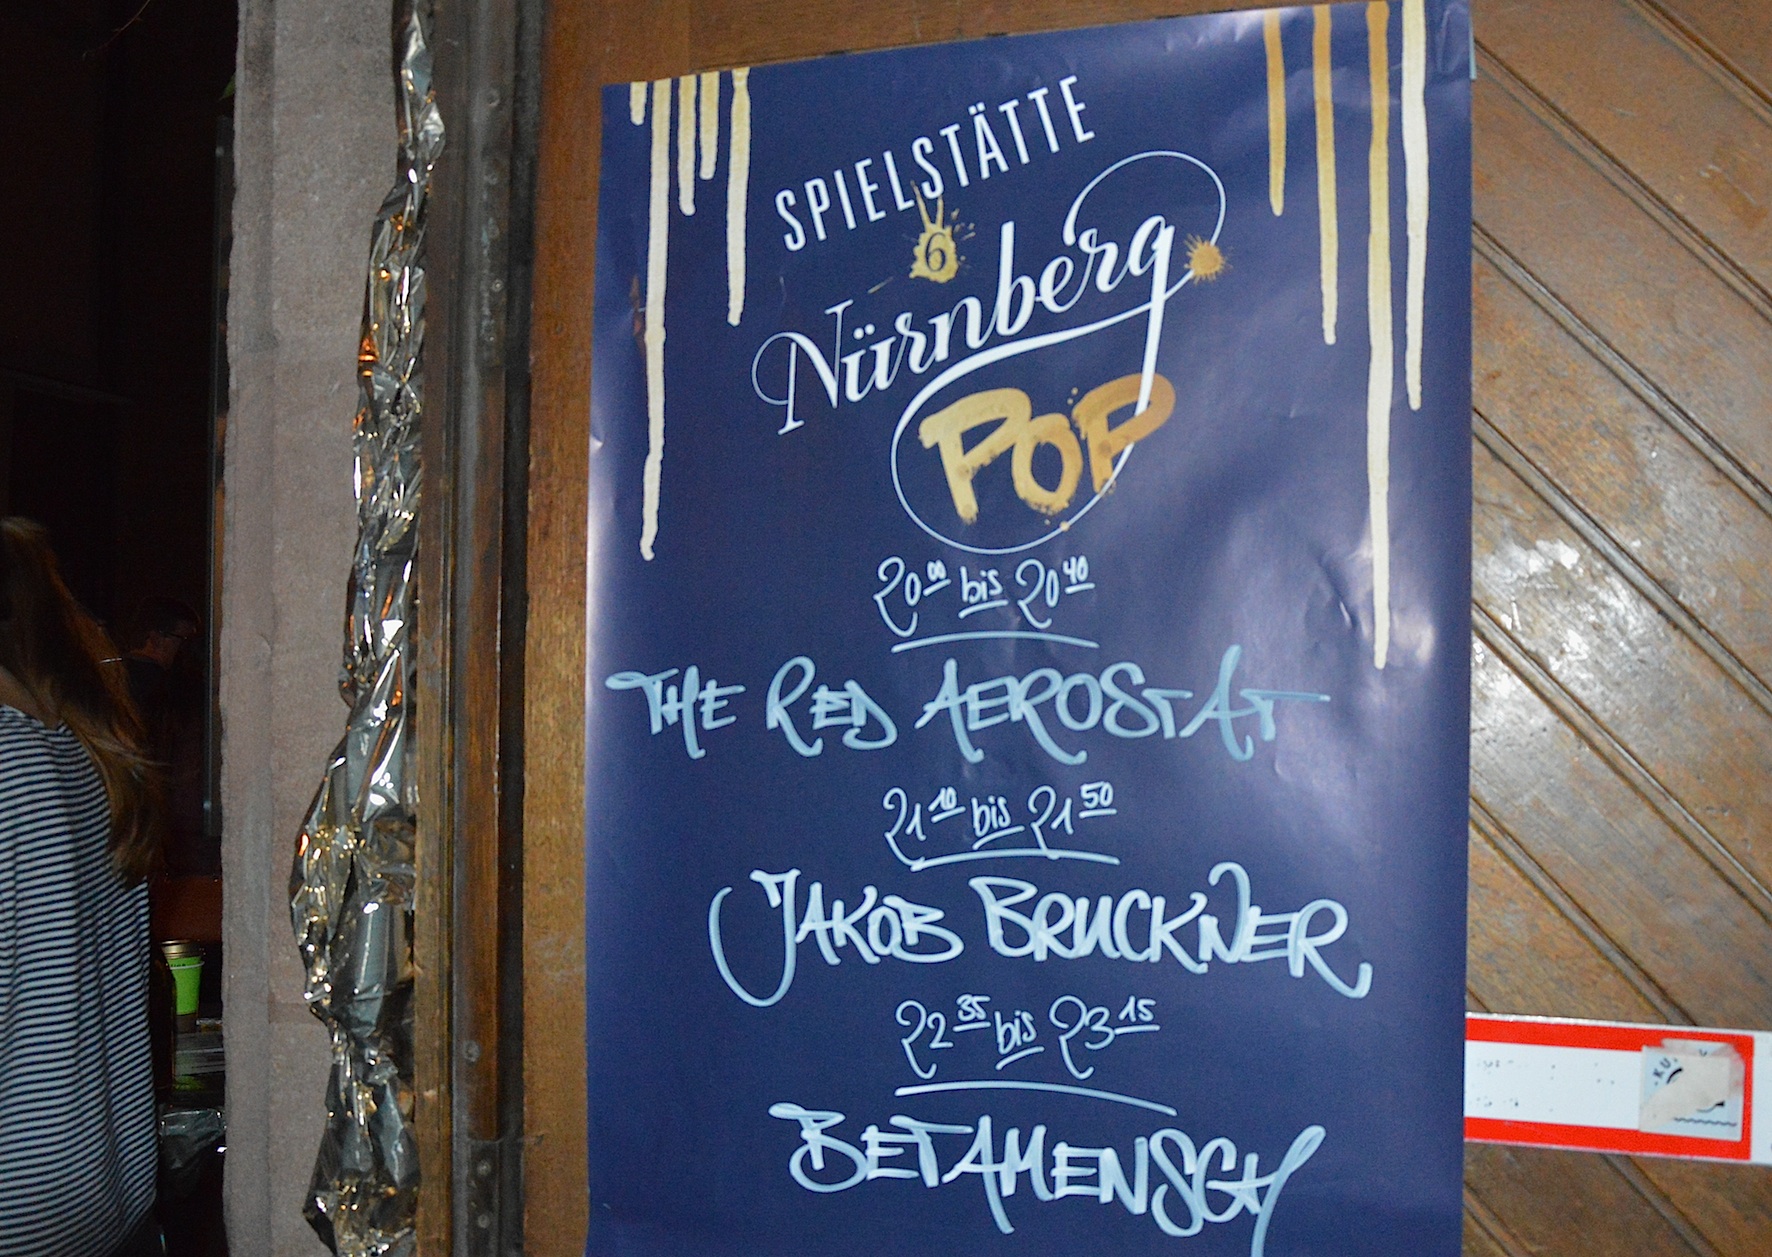 SPIELSTÄTTE
6
Nürnberg
POP
20⁰⁰ bis 20⁴⁰
THE RED AEROSTAT
21¹⁰ bis 21⁵⁰
JAKOB BRUCKNER
22³⁵ bis 23¹⁵
BETAMENSCH